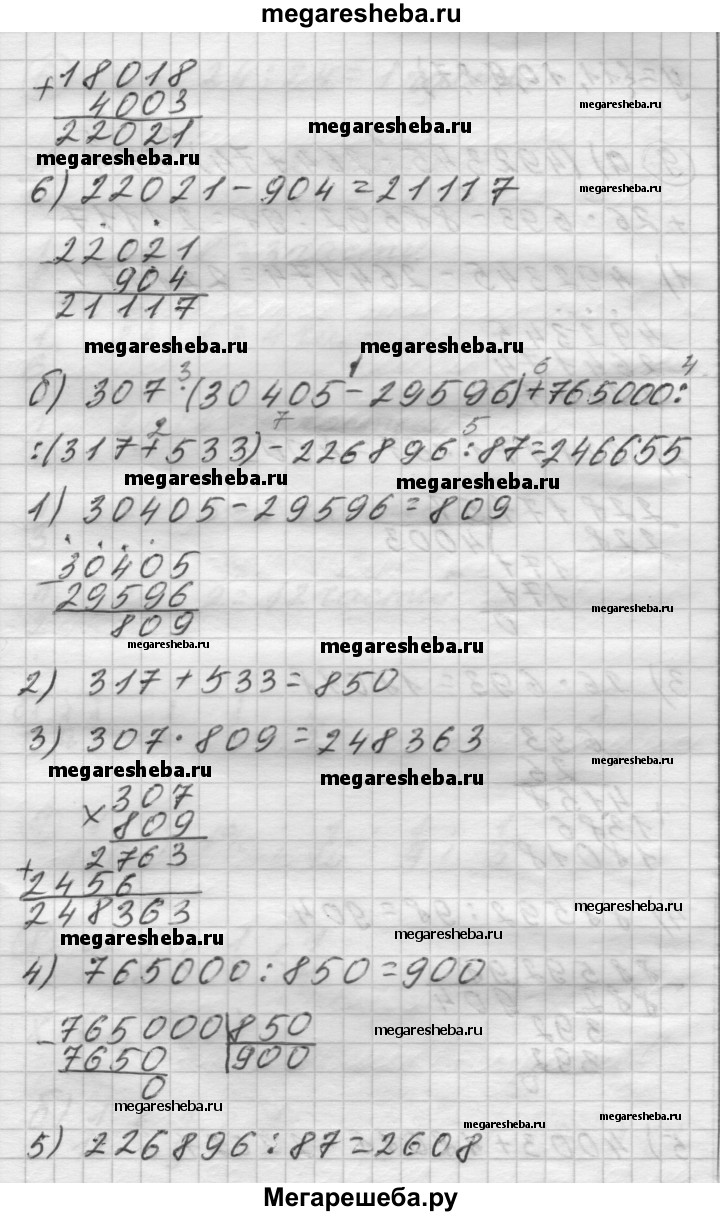 megaresheba.ru
+18018
4003
22021
megaresheba.ru
megaresheba.ru
megaresheba.ru
6) 22021-904=21117
megaresheba.ru
-22021
904
21117
megaresheba.ru
megaresheba.ru
3 1 6 4
б) 307·(30405-29596)+765000:
2 7 5
:(317+533)-226896:87=246655
megaresheba.ru
megaresheba.ru
1) 30405-29596=809
-30405
29596
809
megaresheba.ru
megaresheba.ru
megaresheba.ru
2) 317+533=850
3) 307·809=248363
megaresheba.ru
megaresheba.ru
megaresheba.ru
×307
809
+2763
2456
248363
megaresheba.ru
megaresheba.ru
megaresheba.ru
4) 765000:850=900
-765000|850
7650 |900
0
megaresheba.ru
megaresheba.ru
megaresheba.ru
megaresheba.ru
5) 226896:87=2608
Мегарешеба.ру